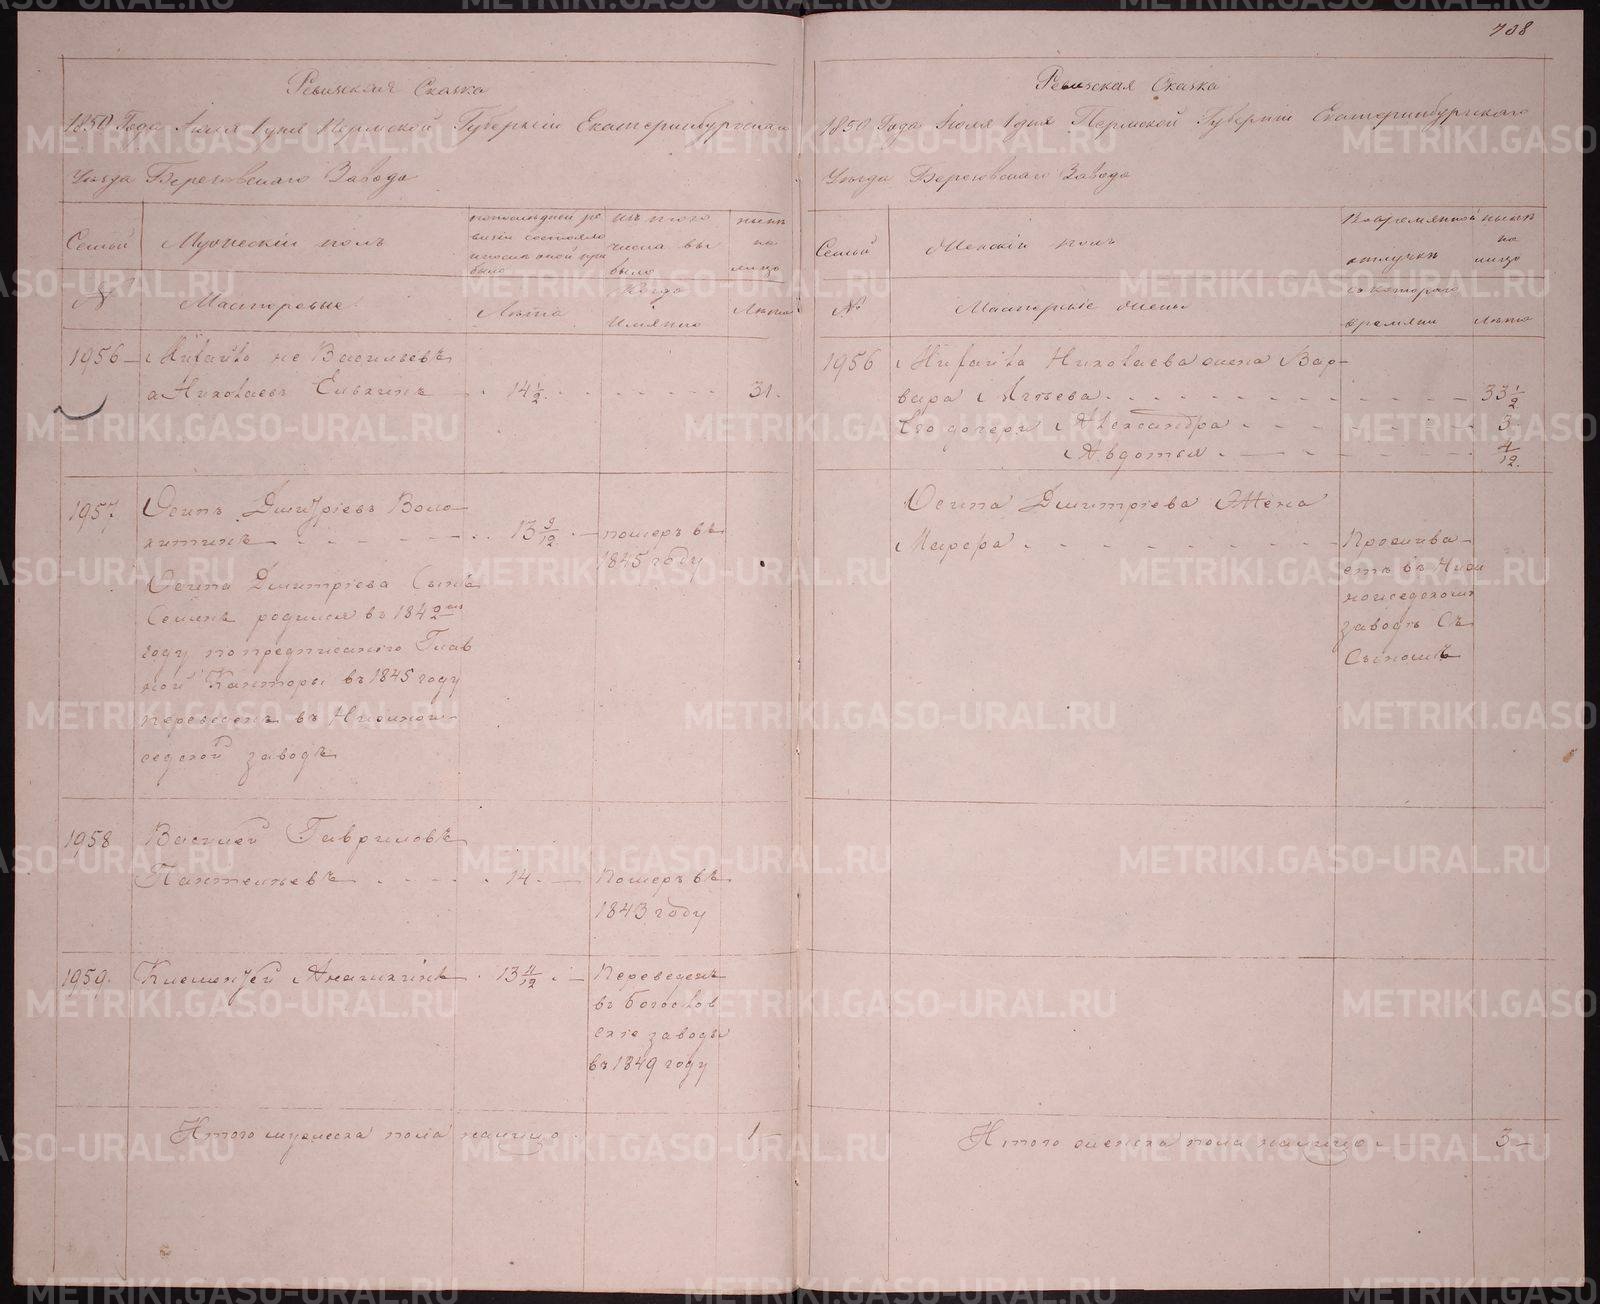 708
Ревижская Сказка
1850 Года Июля 1 дня Пермской Губернiи Екатеринбургскаго
Уезда Березовскаго Завода
Семьи
Мужескiй полъ
по последней ре
визiи состояло
и после оной при
было
изъ того
числа вы
было
ныне
на
лицо
№
Мастеровые
Лета
Когда
имянно
Лета
1956
Никита не Васильевъ
а Николаевъ
14 1/2
31
1957
Осипъ Дмитрiевъ Воло
хитинъ
13 9/12
померъ въ
1845 году
Осипа Дмитрiева Сынъ
Семенъ родился въ 1842 мъ
году по предписанiю Глав
ной Канторы въ 1845 году
переведенъ въ Нижнои-
седской заводъ
1958
Василей Гавриловъ
Пантелеевъ
14
Померъ въ
1843 году
1959
Клементей
13 4/12
Переведенъ
въ Богослов
скiе заводы
въ 1849 году
Итого мужеска пола налицо
1
Ревижская Сказка
1850 Года Июля 1 дня Пермской Губернiи Екатеринбургскаго
Уезда Березовскаго Завода
Семьи
Женскiй полъ
Во временной
отлучке
ныне
на
лицо
№
Мастерскiе жены
съ котораго
времяни
Лета
1956
Никита Николаева жена Вар-
вара
33 1/2
Его дочери Александра
3
Авдотья
4/12
Осипа Дмитрiева Жена
Марфа
Прожива-
етъ въ Нижне
исецкомъ
заводе Съ
Сыномъ
Итого женска пола налицо
3
METRIKI.GASO-URAL.RU